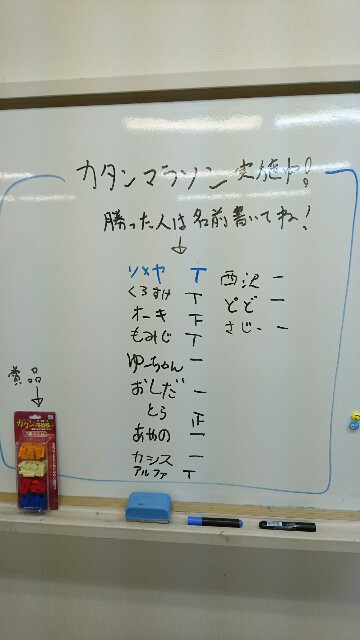 カタンマラソン実施中!
勝った人は名前書いてね!
↓
ソメヤ T
くろすけ T
オーキ 下
もみじ T
ゆーちゃん 一
おしだ 一
とら 正
あやの 一
カシス 一
アルファ T
西沢 一
とど 一
さじー 一
賞品
↓
カタン